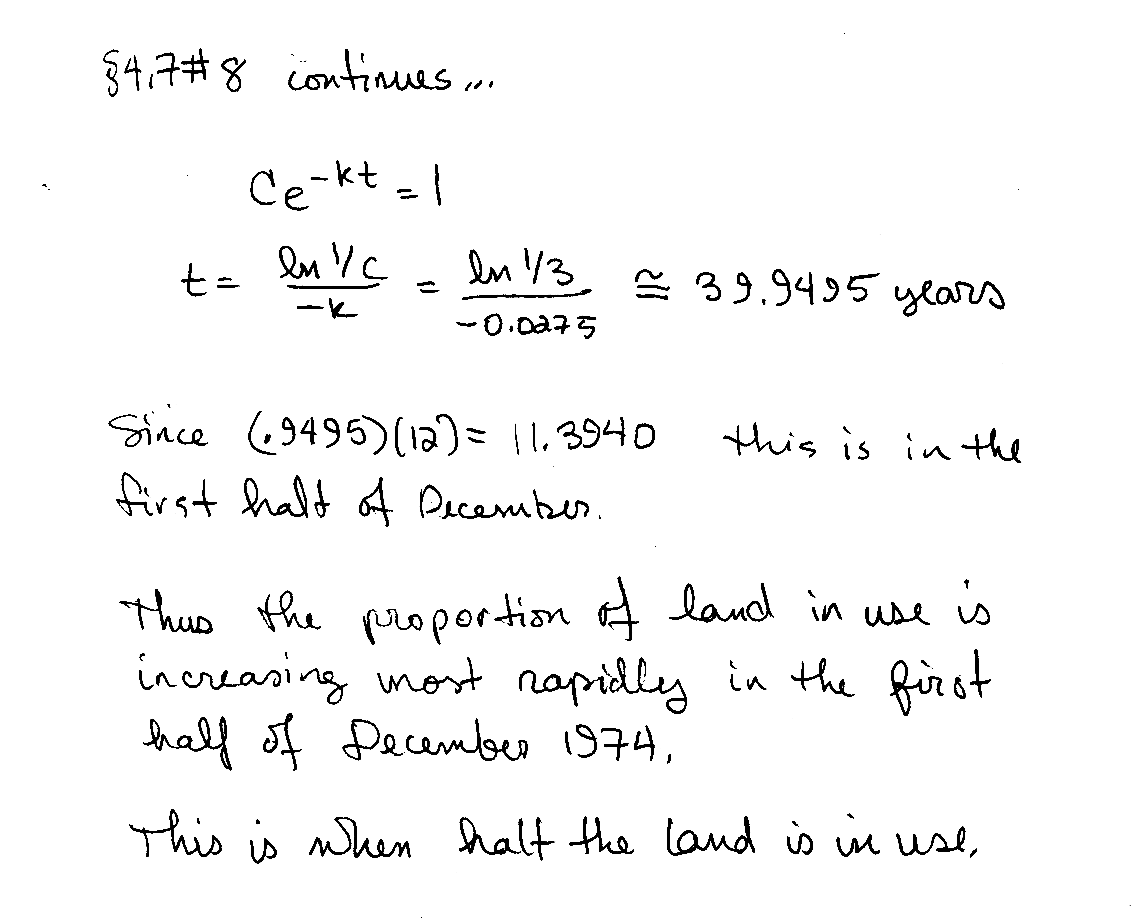 §4.7#8 continues...
Ce^-kt = 1
t = ln 1/C / -k = ln 1/3 / -0.0275 ≅ 39.9495 years
Since (.9495)(12) = 11.3940 this is in the
first half of December.
Thus the proportion of land in use is
increasing most rapidly in the first
half of December 1974.
This is when half the land is in use.